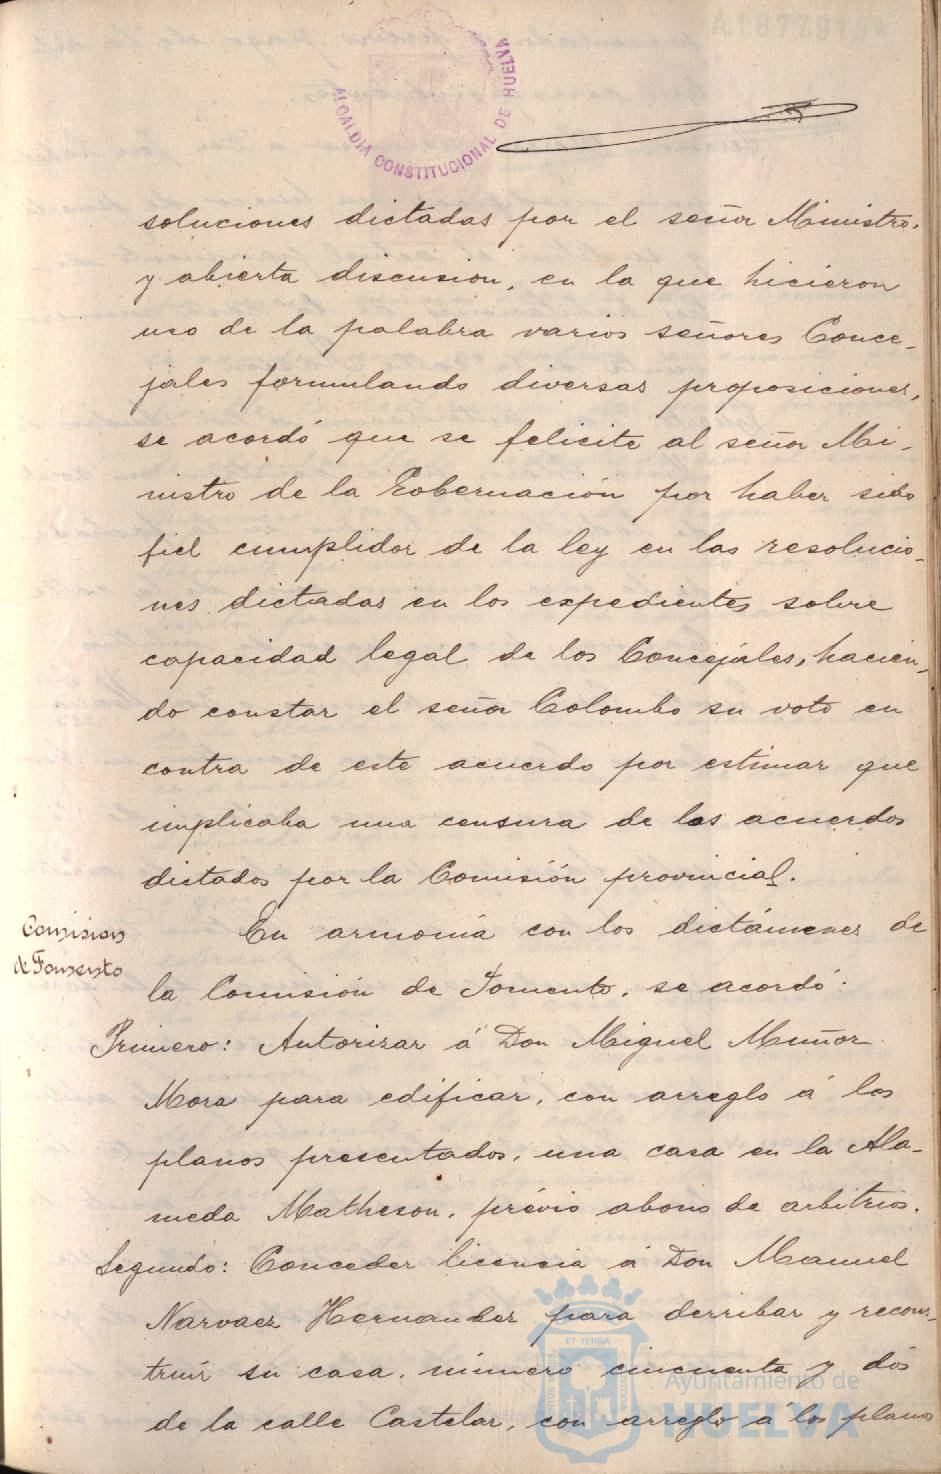 A1877919*
ALCALDIA CONSTITUCIONAL DE HUELVA
soluciones dictadas por el señor Ministro,
y abierta discusion, en la que hicieron
uso de la palabra varios señores Conce-
jales formulando diversas proposiciones,
se acordó que se felicite al señor Mi-
nistro de la Gobernación por haber sido
fiel cumplidor de la ley en las resolucio-
nes dictadas en los expedientes sobre
capacidad legal de los Concejales, hacien-
do constar el señor Colombo su voto en
contra de este acuerdo por estimar que
implicaba una censura de los acuerdos
dictados por la Comisión provincial.
Comision
de Fomento
En armonía con los dictámenes de
la Comisión de Fomento, se acordó:
Primero: Autorizar á Don Miguel Muñoz
Mora para edificar, con arreglo á los
planos presentados, una casa en la Ala-
meda Matheson, prévio abono de arbitrios.
Segundo: Conceder licencia á Don Manuel
Narvaez Hernandez para derribar y recons-
truir su casa, número cincuenta y dós
de la calle Castelar, con arreglo á los planos
ET TERRÆ
CUSTODIA
Ayuntamiento de
HUELVA